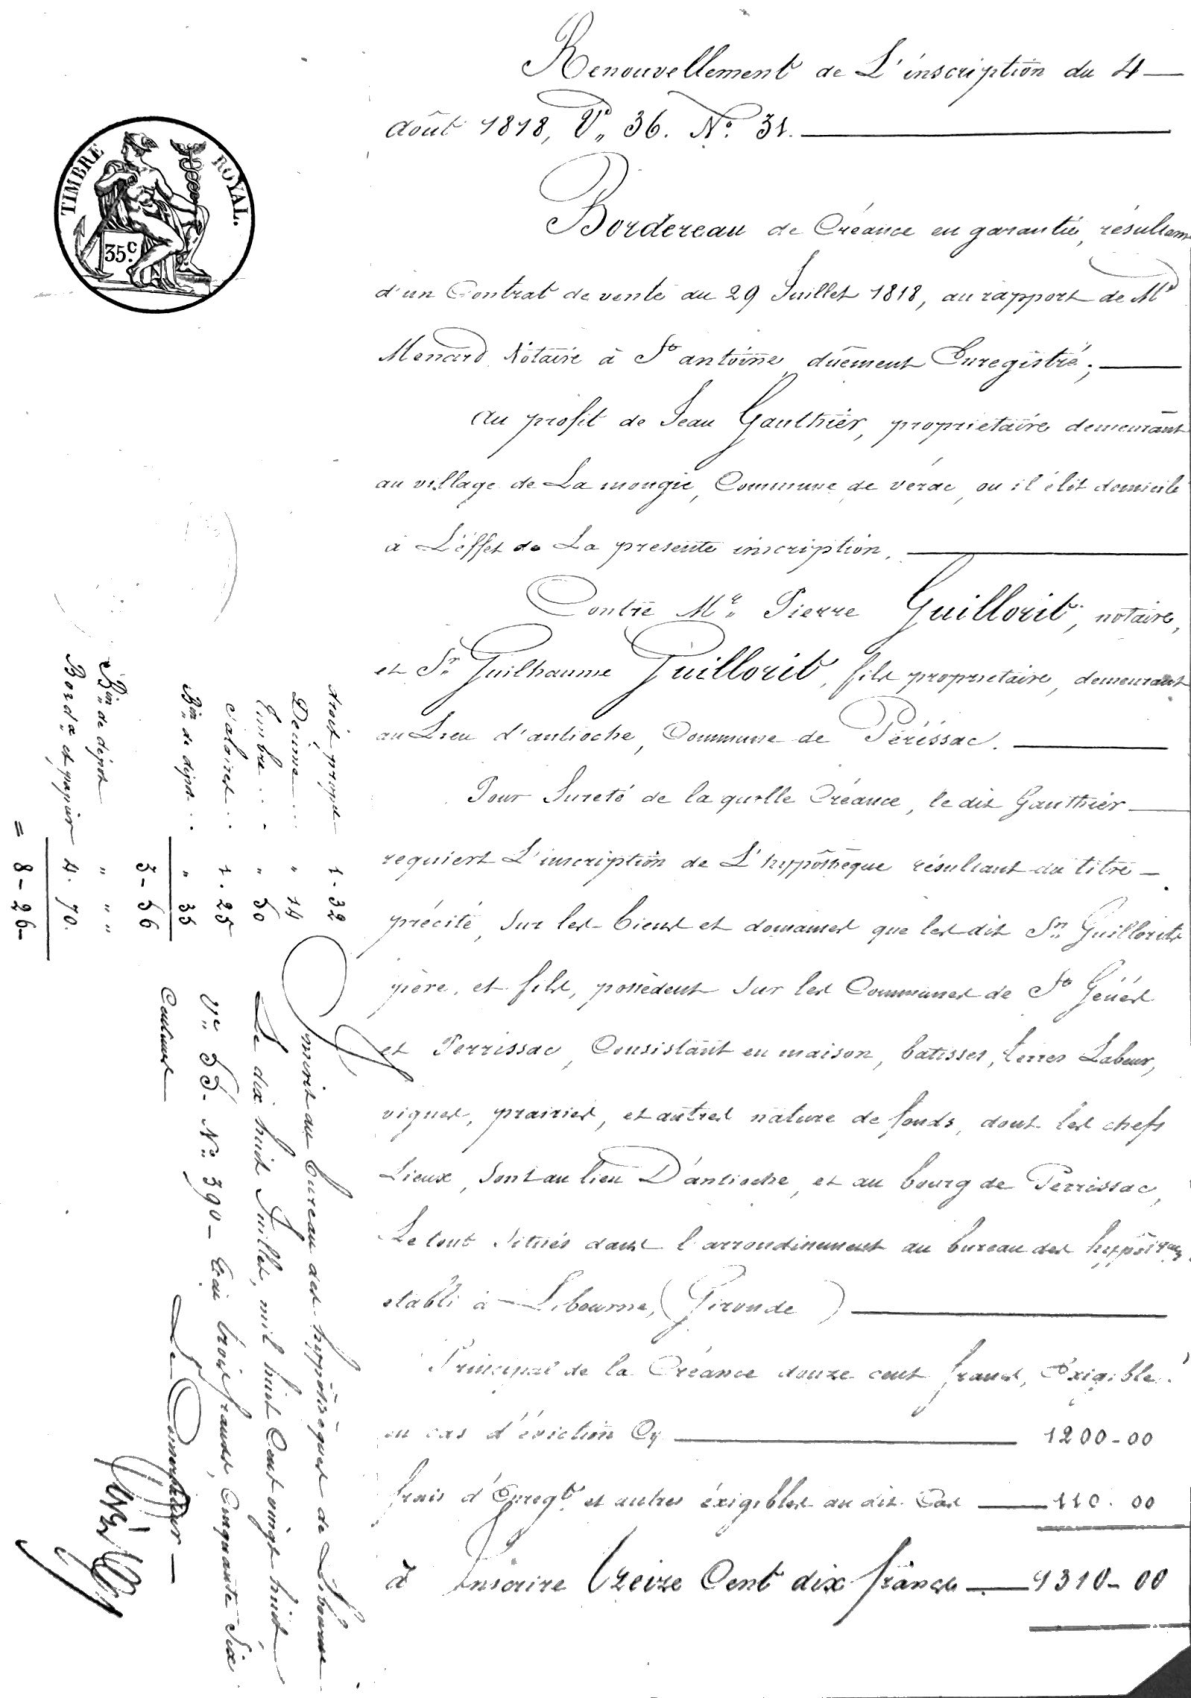 Renouvellement de L'inscription du 4
août 1818, V.e 36. N.o 31.
TIMBRE ROYAL.
35 c.
Bordereau de Créance en garantie, résultant
d'un Contrat de vente du 29 Juillet 1818, au rapport de Me
Menard Notaire à St antoine, duement Enregistré;
au profit de Jean Gauthier, propriétaire demeurant
au village de La mongie, Commune de vérac, ou il élit domicile
à L'éffet de La presente inscription.
Contre Mr. Pierre Guillorit, notaire,
et Sr. Guilhaume Guillorit, fils proprietaire, demeurant
au Lieu d'antioche, Commune de Périssac.
Pour Sureté de laquelle Créance, le dit Gauthier
requiert L'inscription de L'hypôthèque résultant du titre
précité, Sur les biens et domaines que les dit Srs Guillorits
père, et fils, possèdent Sur les Communes de St Génès
et Perrissac, Consistant en maison, batisses, terres Labour,
vignes, prairies, et autres nature de fonds, dont les chefs
Lieux, Sont au lieu D'antioche, et au bourg de Perrissac,
Le tout Situés dans l'arrondissement au bureau des hypôthèques
établi à Libourne, (Gironde)
Principal de la Créance douze cent francs, Exigible
en cas d'éviction Cy 1200-00
frais d'Enregt. et autres éxigibles au dit Cas 110.00
à Inscrire treize Cent dix francs 1310-00
droit propre 1-32
Décime " 14
Timbre " 50
Salaires 1.25
Bin. de dépôt " 35
3-56
Bin. de dépôt " " "
Bord.x et papier 4.70.
= 8-26-
Inscrit au bureau des hyppôthèques de Libourne
Le dix huit Juillet, mil huit Cent vingt huit
V.e 55. N.o 390- trois francs, Cinquante Six
Centimes
Le Conservateur